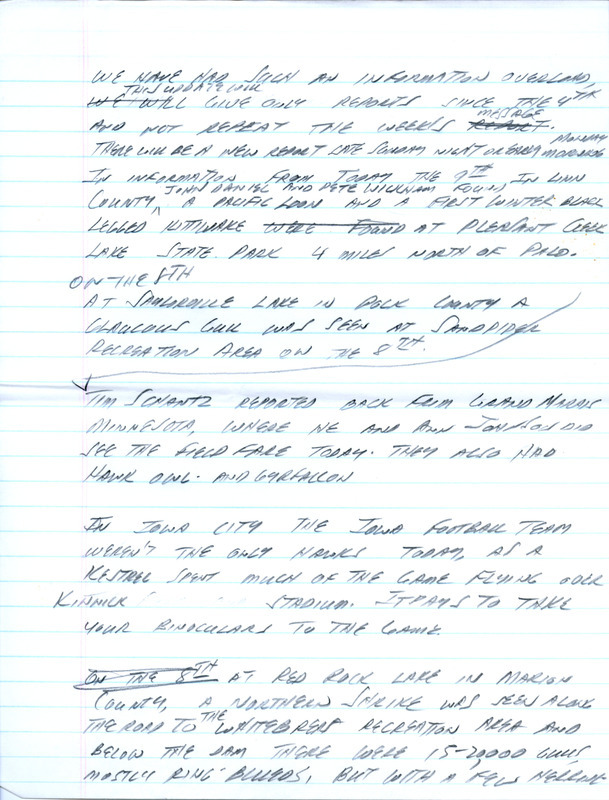 WE HAVE HAD SUCH AN INFORMATION OVERLOAD,
THIS UPDATE WILL
WE WILL GIVE ONLY REPORTS SINCE THE 4TH
MESSAGE
AND NOT REPEAT THE WEEKS REPORT.
THERE WILL BE A NEW REPORT LATE SUNDAY NIGHT OR EARLY MONDAY MORNING
IN INFORMATION FROM TODAY THE 9TH IN LINN
JOHN DANIEL AND PETE WICKHAM FOUND
COUNTY, A PACIFIC LOON AND A FIRST WINTER BLACK
LEGGED KITTIWAKE WERE FOUND AT PLEASANT CREEK
LAKE STATE PARK 4 MILES NORTH OF PALO.
ON THE 8TH
AT SAYLORVILLE LAKE IN POLK COUNTY A
GLAUCOUS GULL WAS SEEN AT SANDPIPER
RECREATION AREA ON THE 8TH.
TIM SCHANTZ REPORTED BACK FROM GRAND MARAIS
MINNESOTA, WHERE HE AND ANN JOHNSON DID
SEE THE FIELD FARE TODAY. THEY ALSO HAD
HAWK OWL. AND GYRFALCON
IN IOWA CITY THE IOWA FOOTBALL TEAM
WEREN'T THE ONLY HAWKS TODAY, AS A
KESTREL SPENT MUCH OF THE GAME FLYING OVER
KINNICK STADIUM. IT PAYS TO TAKE
YOUR BINOCULARS TO THE GAME.
ON THE 8TH AT RED ROCK LAKE IN MARION
COUNTY, A NORTHERN SHRIKE WAS SEEN ALONG
THE ROAD TO THE WHITEBREAST RECREATION AREA AND
BELOW THE DAM THERE WERE 15-20000 GULLS,
MOSTLY RING-BILLEDS, BUT WITH A FEW HERRING